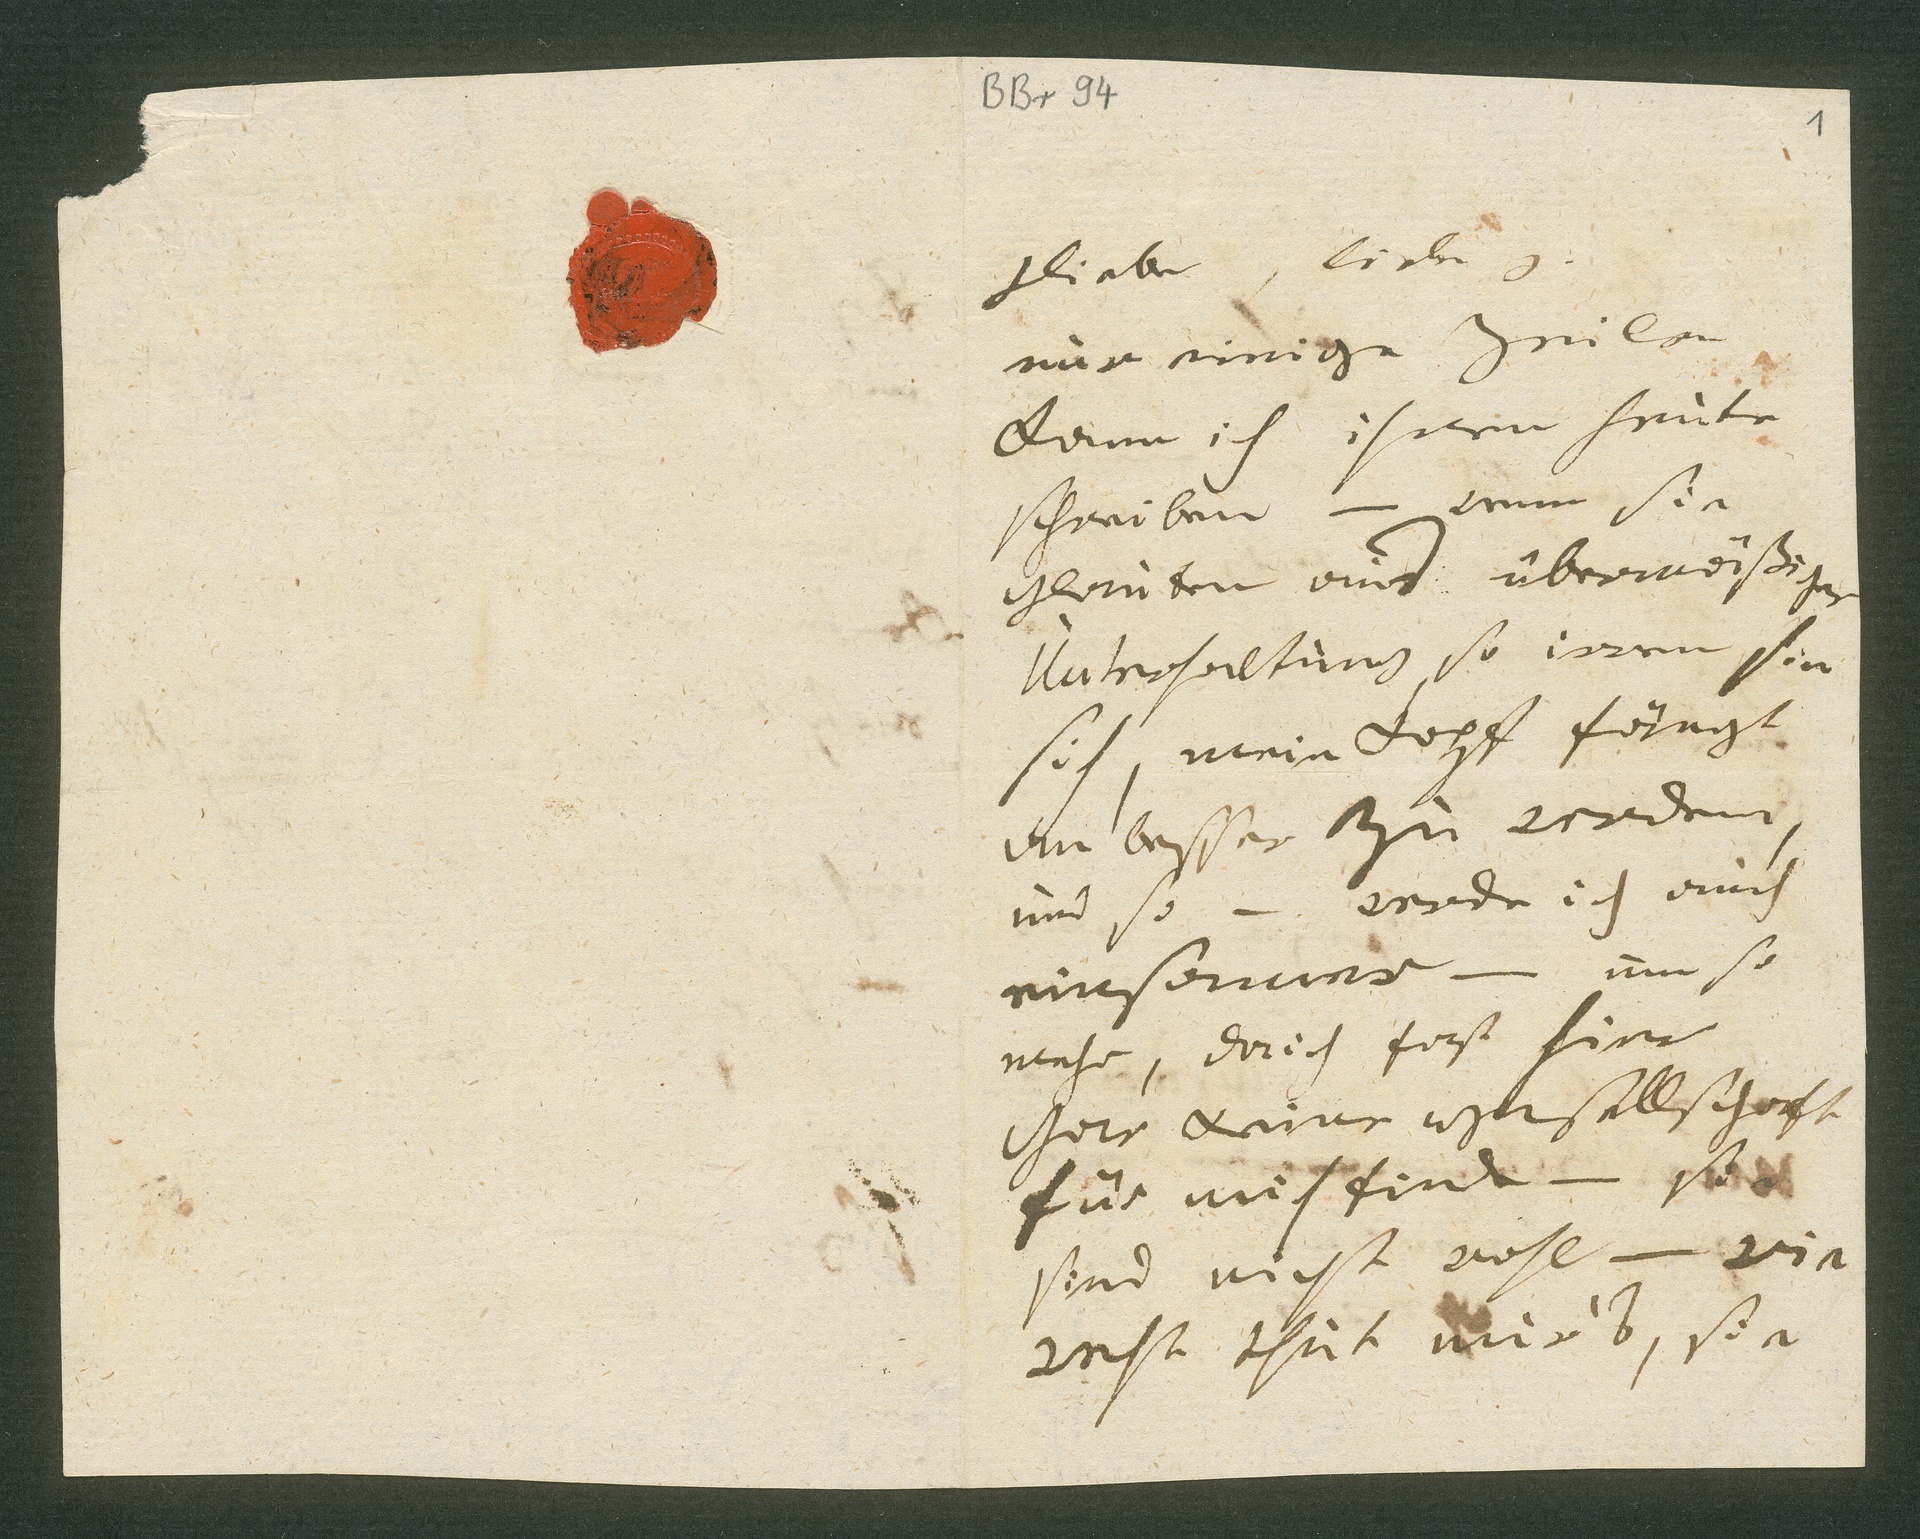 BBr 94
1
liebe, liebe J.
nur einige Zeilen
kann ich ihnen heute
schreiben — wenn sie
glauben aus übermäßiger
Unterhaltung, so irren sie
sich, mein Kopf fängt
an besser zu werden,
und so — werde ich auch
einsamer — um so
mehr, da ich fast hier
gar keine gesellschaft
für mich finde — sie
sind nicht wohl — wie
weh thut mir's, sie